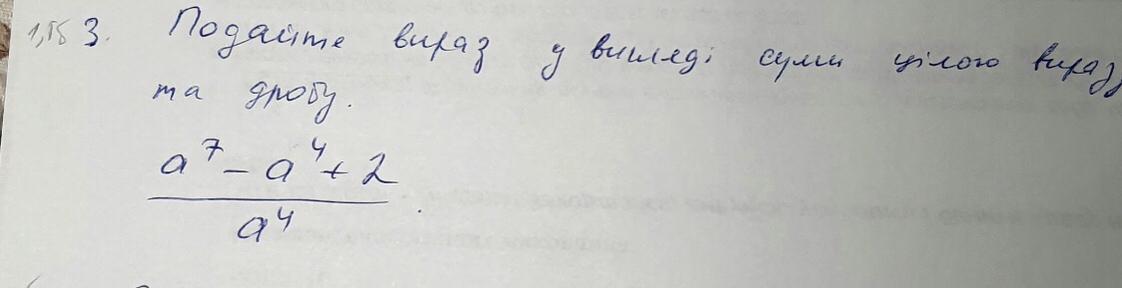 1,5б 3. Подайте вираз у вигляді суми цілого виразу
та дробу.
a⁷ - a⁴ + 2
a⁴.